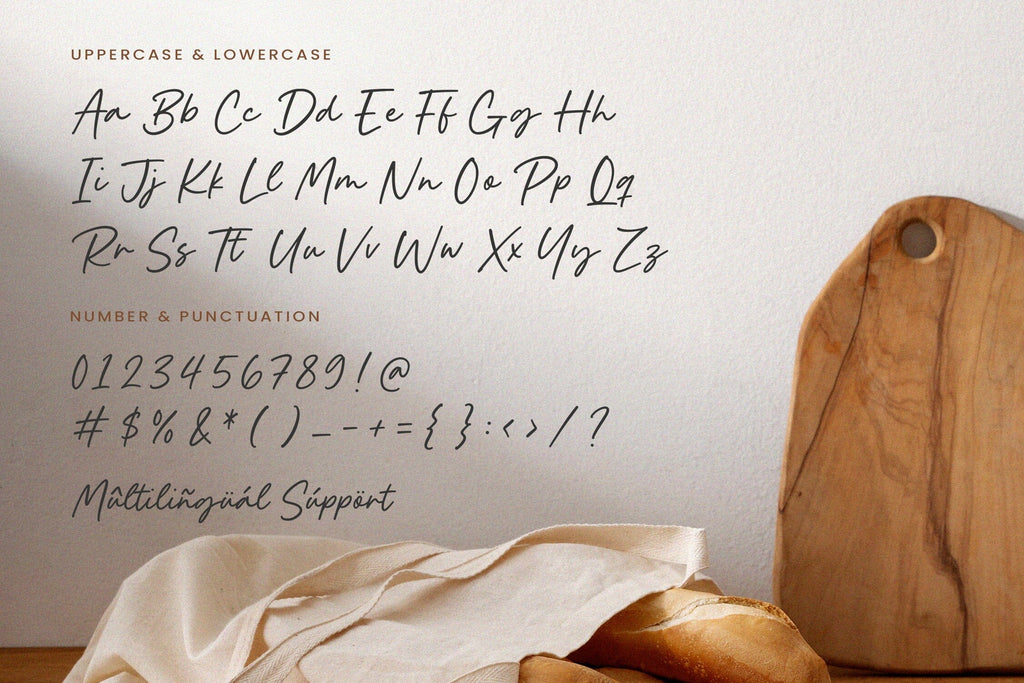 UPPERCASE & LOWERCASE
Aa Bb Cc Dd Ee Ff Gg Hh
Ii Jj Kk Ll Mm Nn Oo Pp Qq
Rr Ss Tt Uu Vv Ww Xx Yy Zz
NUMBER & PUNCTUATION
0123456789!@
#$%&*()_-+={}:<>/?
Mûltiliñgüál Súppört